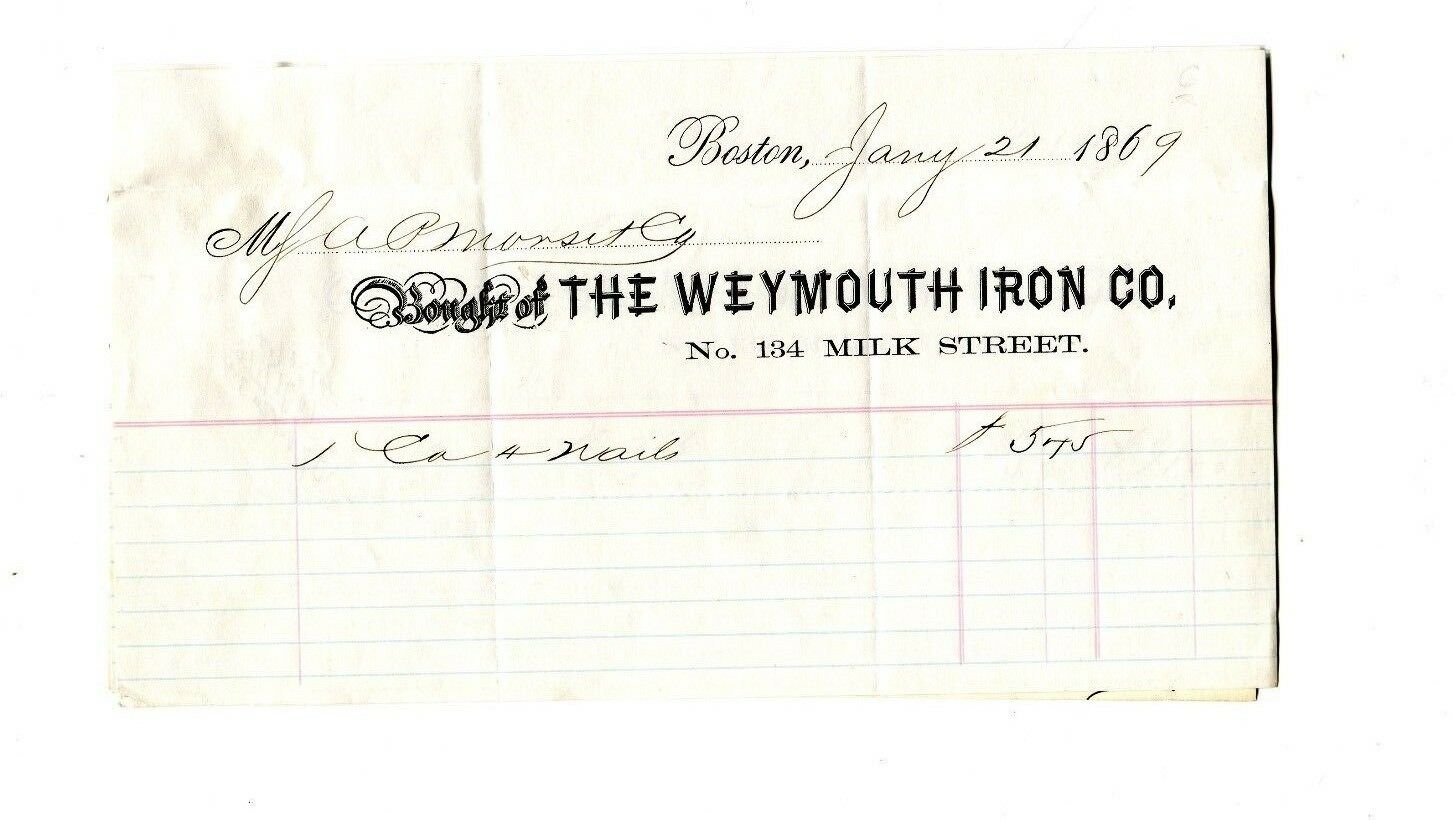 Boston, Jany 21 1869
M A P Morse & Co
Bought of THE WEYMOUTH IRON CO.
No. 134 MILK STREET.
1 Ca 4 Nails $ 545